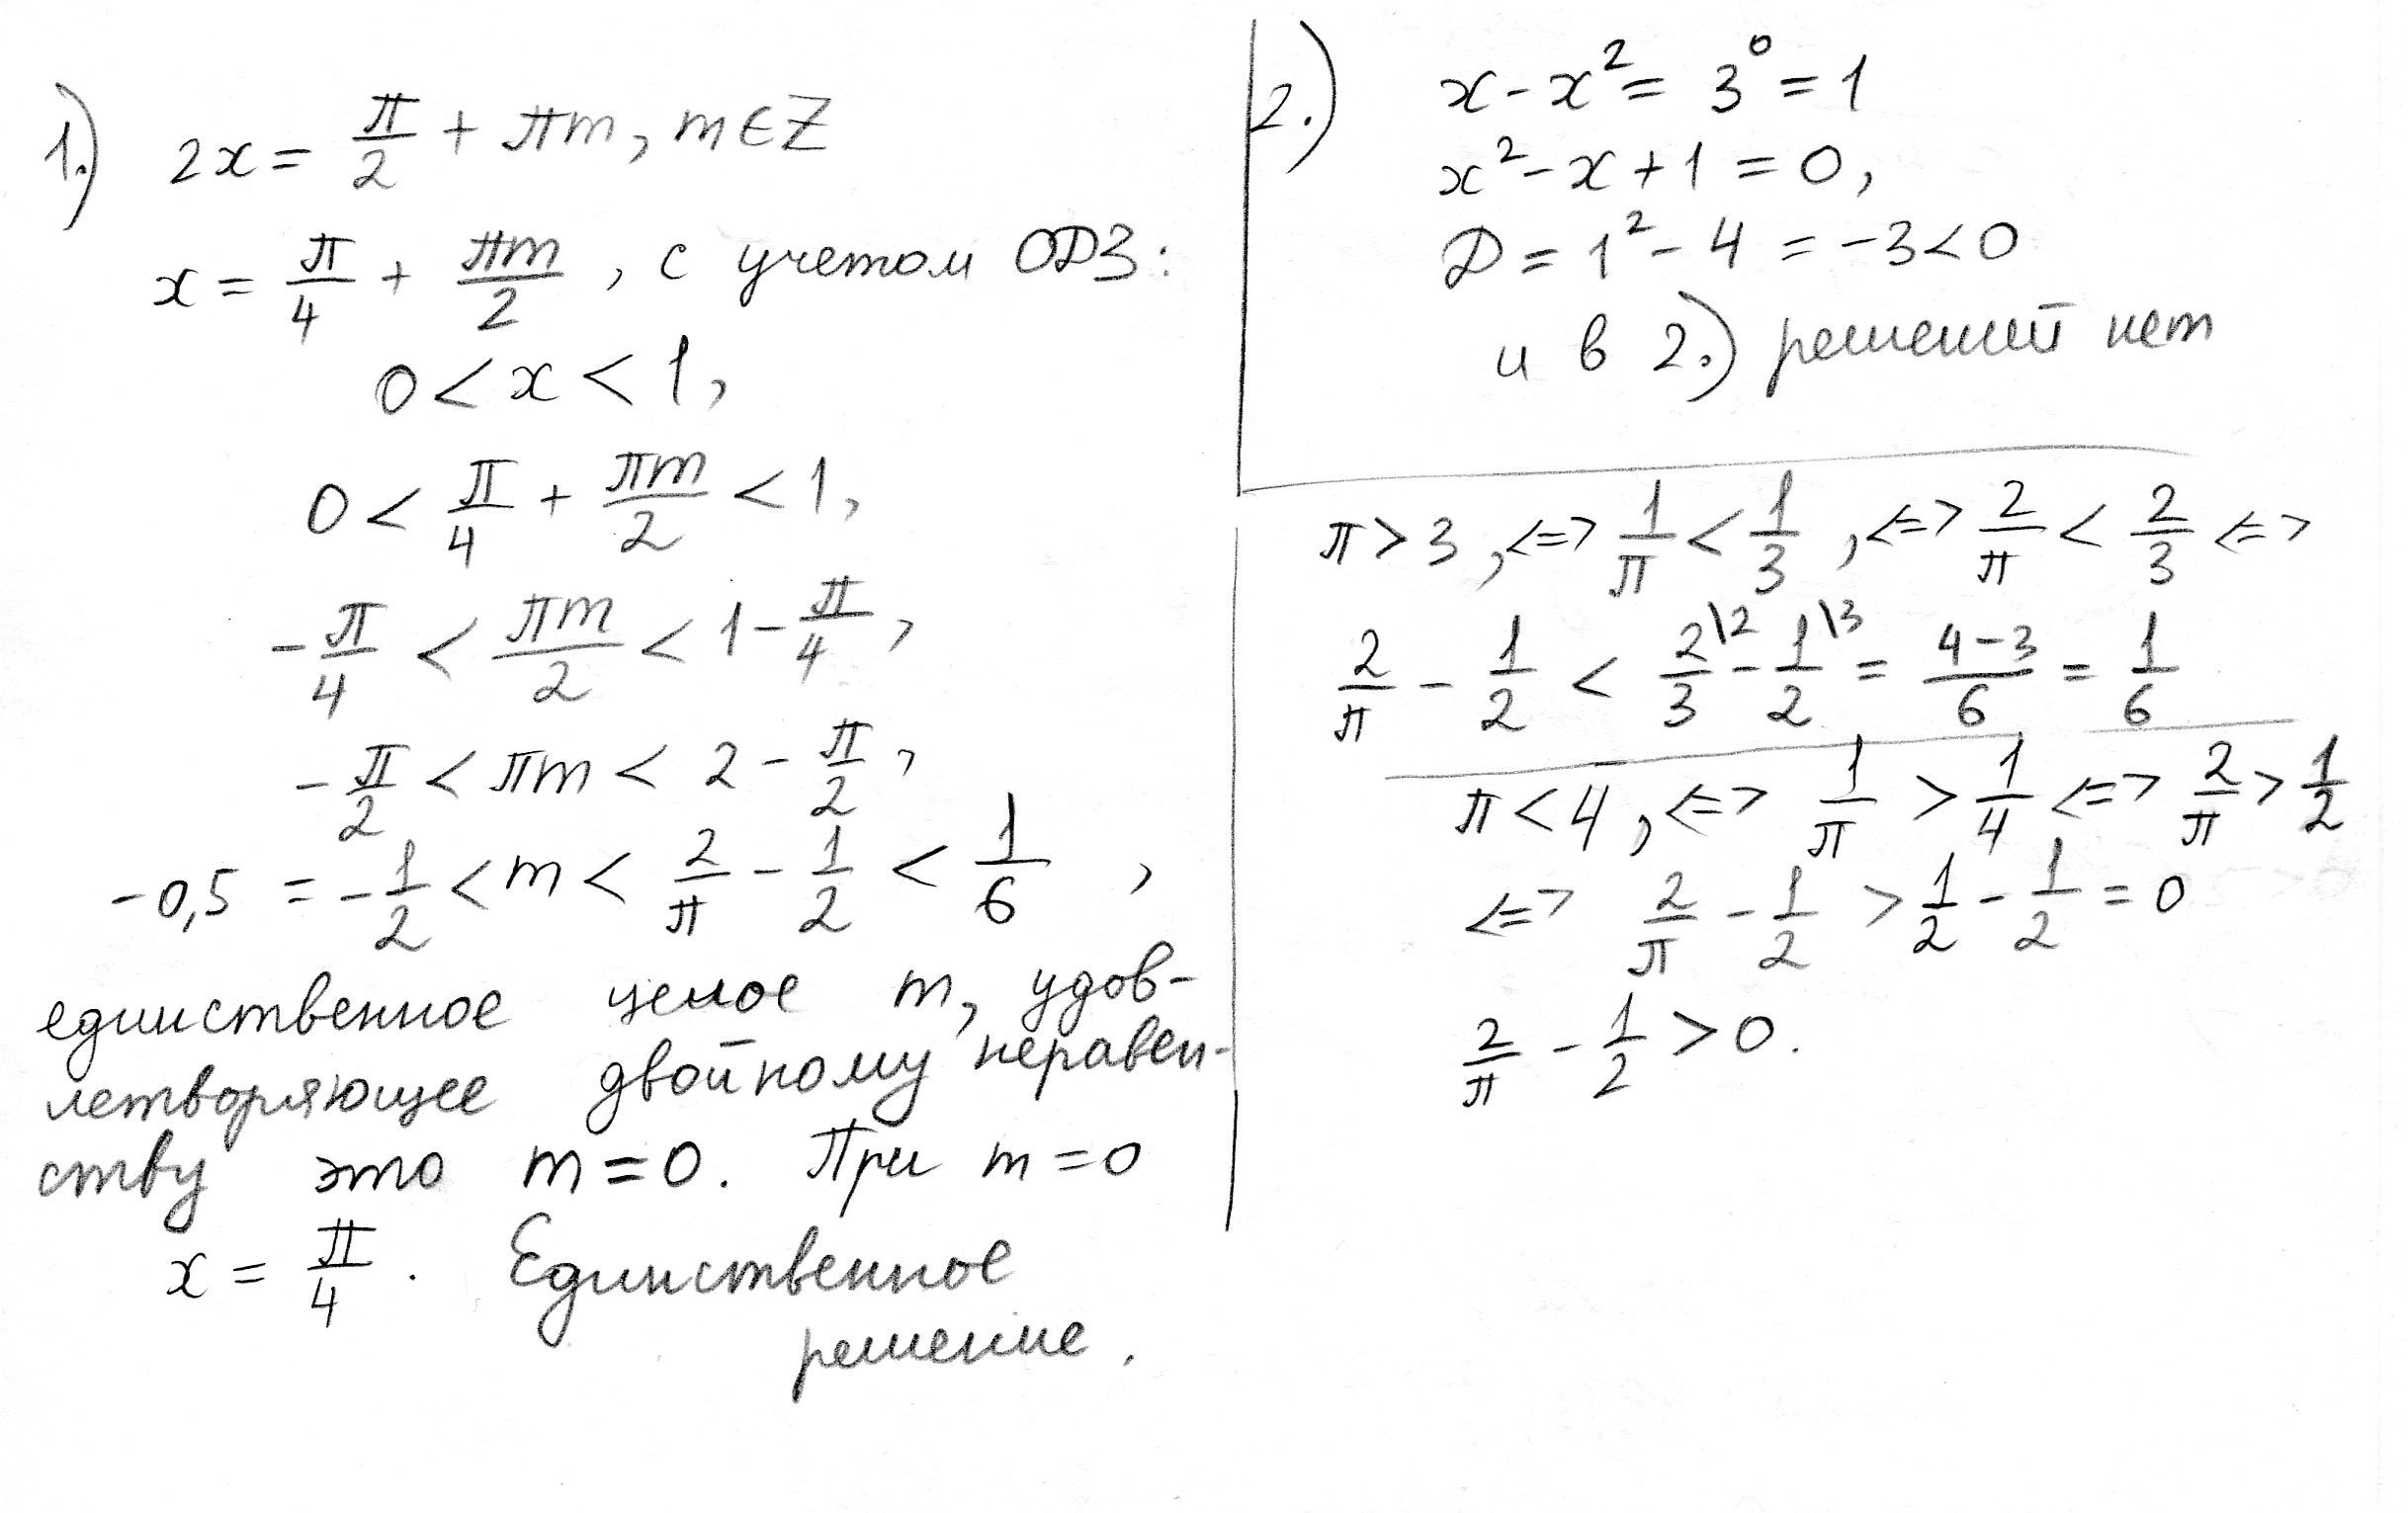 1.) 2x = π/2 + πm, m∈Z
x = π/4 + πm/2, с учетом ОДЗ:
0 < x < 1,
0 < π/4 + πm/2 < 1,
-π/4 < πm/2 < 1 - π/4,
-π/2 < πm < 2 - π/2,
-0,5 = -1/2 < m < 2/π - 1/2 < 1/6,
единственное целое m, удов-
летворяющее двойному неравен-
ству это m = 0. При m = 0
x = π/4. Единственное
решение.
2.) x - x² = 3⁰ = 1
x² - x + 1 = 0,
D = 1² - 4 = -3 < 0
и в 2.) решений нет
π > 3, <=> 1/π < 1/3, <=> 2/π < 2/3 <=>
2/π - 1/2 < 2/3\2 - 1/2\3 = (4-3)/6 = 1/6
π < 4, <=> 1/π > 1/4 <=> 2/π > 1/2
<=> 2/π - 1/2 > 1/2 - 1/2 = 0
2/π - 1/2 > 0.